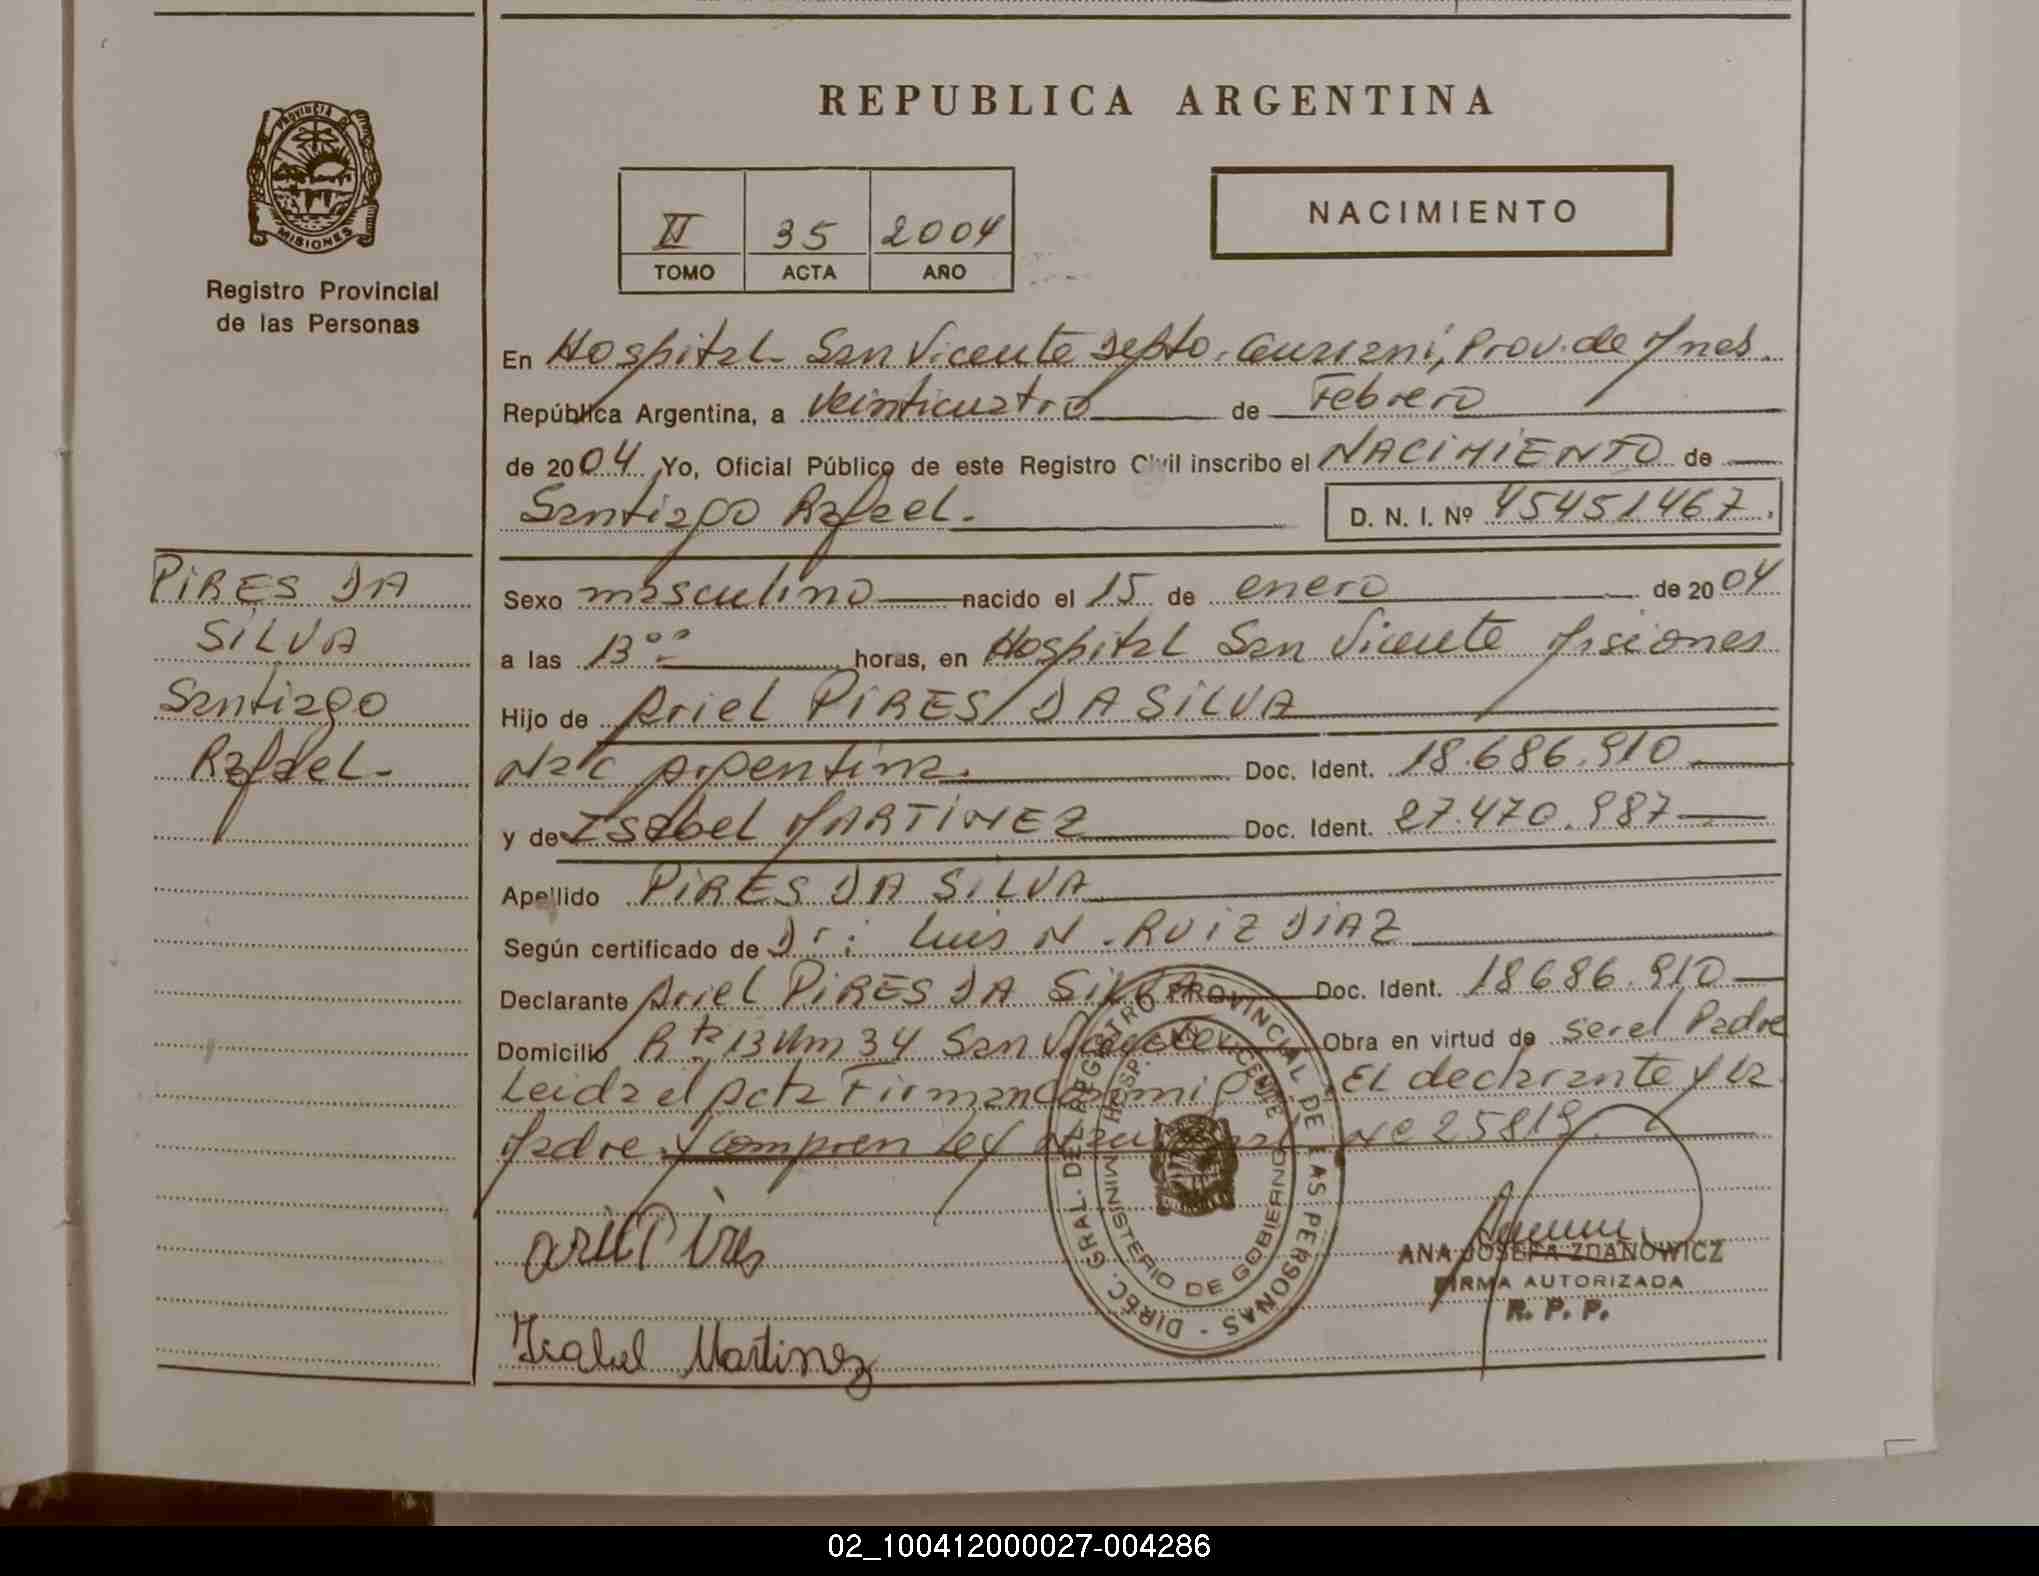 REPUBLICA ARGENTINA
PROVINCIA DE
MISIONES
Registro Provincial
de las Personas
II 35 2004
TOMO ACTA AÑO
NACIMIENTO
En Hospital San Vicente Depto. Guarani, Prov. de Mnes.
República Argentina, a Veinticuatro de Febrero
de 2004 Yo, Oficial Público de este Registro Civil inscribo el NACIMIENTO de
Santiago Rafael. D. N. I. Nº 45451467.
PIRES DA
SILVA
Santiago
Rafael.
Sexo masculino nacido el 15 de enero de 2004
a las 13°° horas, en Hospital San Vicente Misiones
Hijo de Ariel PIRES DA SILVA
Nac Argentina. Doc. Ident. 18.686.910
y de Isabel MARTINEZ Doc. Ident. 27.470.987
Apellido PIRES DA SILVA
Según certificado de Dr: Luis N. RUIZ DIAZ
Declarante Ariel PIRES DA SILVA Doc. Ident. 18686.910
Domicilio Rta 13 Km 34 San Vicente Obra en virtud de ser el Padre
Leida el Acta Firman Conmigo EL declarante y la
Madre y compren Ley Nacional Nº 25819.
DIREC. GRAL. DEL REGISTRO PROVINCIAL DE LAS PERSONAS -
HOSP. SAN VICENTE
MINISTERIO DE GOBIERNO
Ariel Pires
ANA JOSEFA ZDANOWICZ
FIRMA AUTORIZADA
R. P. P.
Isabel Martinez
02_100412000027-004286